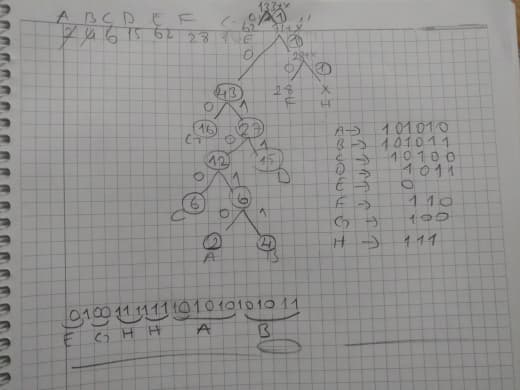 A B C D E F G H
2 4 6 15 62 28
0 1
62
E
0 1
0 1
28 X
F H
43
0 1
16 27
G 0 1
12 15
D
0 1
6 6
C 0 1
2 4
A B
A → 101010
B → 101011
C → 10100
D → 1011
E → 0
F → 110
G → 100
H → 111
0100111111101010101011
E G H H A B